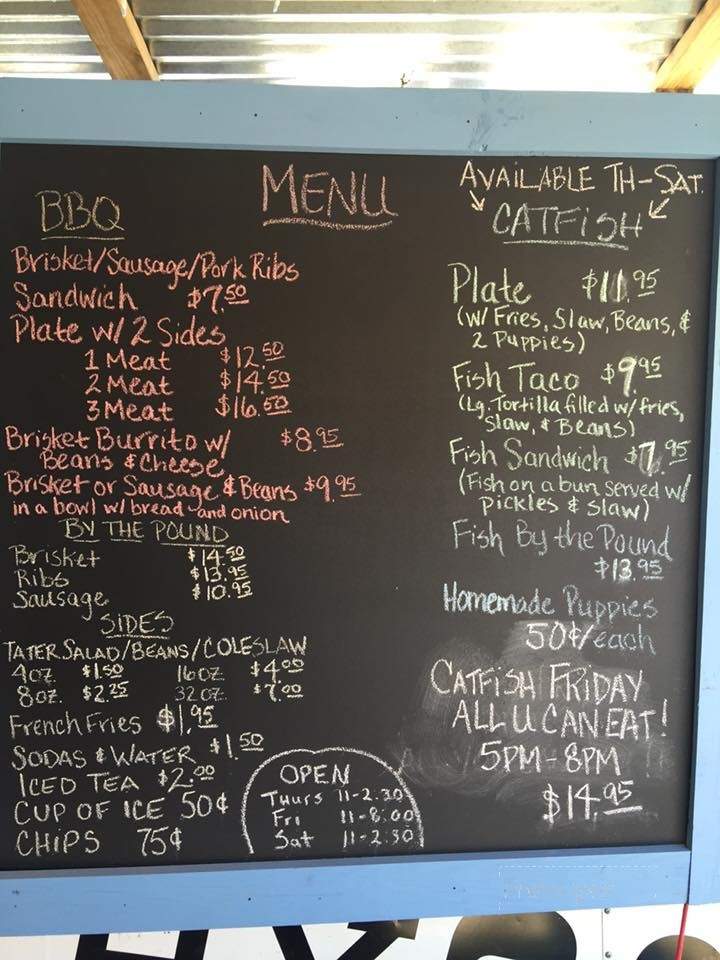 MENU
BBQ
Brisket/Sausage/Pork Ribs
Sandwich $7.50
Plate w/ 2 Sides
1 Meat $12.50
2 Meat $14.50
3 Meat $16.50
Brisket Burrito w/ $8.95
Beans & Cheese
Brisket or Sausage & Beans $9.95
in a bowl w/ bread and onion
BY THE POUND
Brisket $14.50
Ribs $13.95
Sausage $10.95
SIDES
TATER SALAD/BEANS/COLESLAW
4oz $1.50 16oz $4.00
8oz $2.25 32oz $7.00
French Fries $1.95
SODAS & WATER $1.50
ICED TEA $2.00
CUP OF ICE 50¢
CHIPS 75¢
OPEN
Thurs 11-2:30
Fri 11-8:00
Sat 11-2:30
AVAILABLE TH-SAT.
CATFISH
Plate $11.95
(w/ Fries, Slaw, Beans, &
2 Puppies)
Fish Taco $9.95
(Lg. Tortilla filled w/ fries,
Slaw, & Beans)
Fish Sandwich $7.95
(Fish on a bun served w/
pickles & slaw)
Fish By the Pound
$13.95
Homemade Puppies
50¢/each
CATFISH FRIDAY
ALL U CAN EAT!
5PM-8PM
$14.95